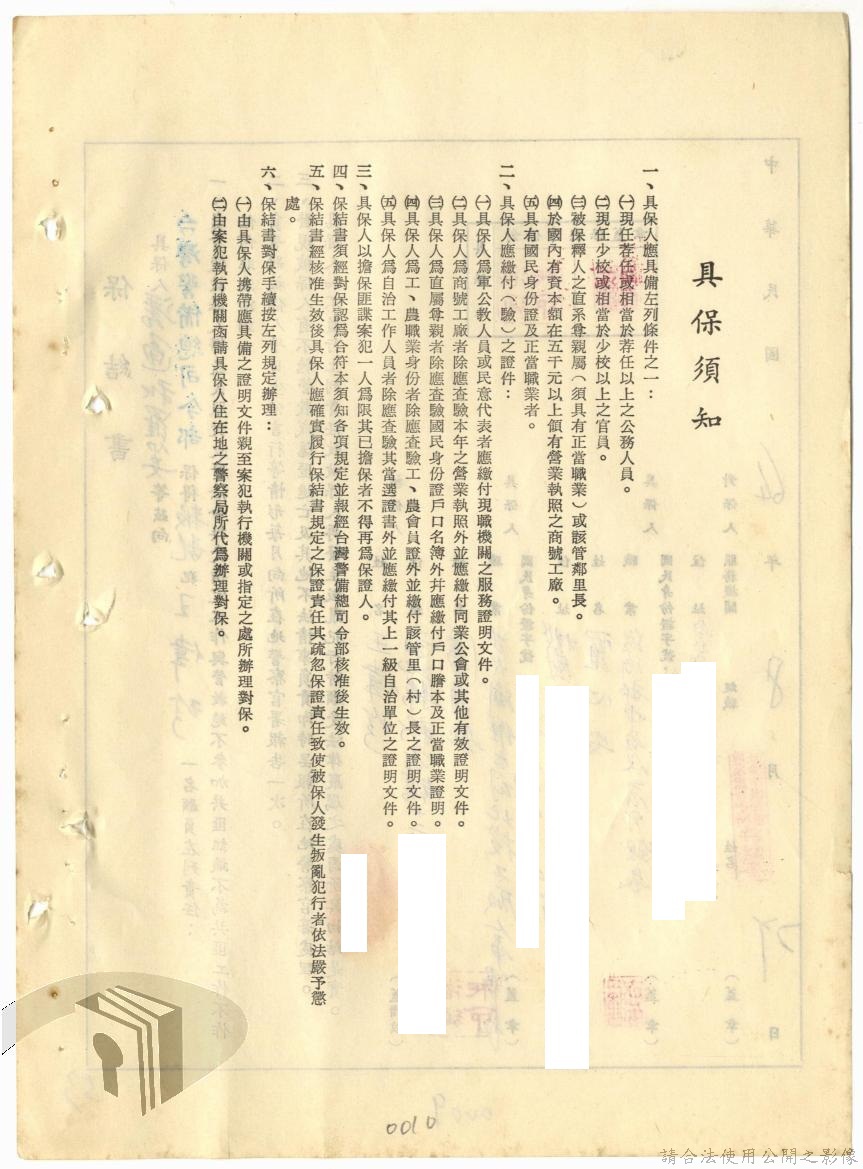 具保須知
一、具保人應具備左列條件之一：
㈠現任荐任或相當於荐任以上之公務人員。
㈡現任少校或相當於少校以上之官員。
㈢被保釋人之直系尊親屬（須具有正當職業）或該管鄰里長。
㈣於國內有資本額在五千元以上領有營業執照之商號工廠。
㈤具有國民身份證及正當職業者。
二、具保人應繳付（驗）之證件：
㈠具保人爲軍公教人員或民意代表者應繳付現職機關之服務證明文件。
㈡具保人爲商號工廠者除應查驗本年之營業執照外並應繳付同業公會或其他有效證明文件。
㈢具保人爲直屬尊親者除應查驗國民身份證戶口名簿外幷應繳付戶口謄本及正當職業證明。
㈣具保人爲工、農職業身份者除應查驗工、農會員證外並繳付該管里（村）長之證明文件。
㈤具保人爲自治工作人員者除應查驗其當選證書外並應繳付其上一級自治單位之證明文件。
三、具保人以擔保匪諜案犯一人爲限其已擔保者不得再爲保證人。
四、保結書須經對保認爲合符本須知各項規定並報經台灣警備總司令部核准後生效。
五、保結書經核准生效後具保人應確實履行保結書規定之保證責任其疏忽保證責任致使被保人發生叛亂犯行者依法嚴予懲
處。
六、保結書對保手續按左列規定辦理：
㈠由具保人携帶應具備之證明文件親至案犯執行機關或指定之處所辦理對保。
㈡由案犯執行機關函請具保人住在地之警察局所代爲辦理對保。
0010
請合法使用公開之影像